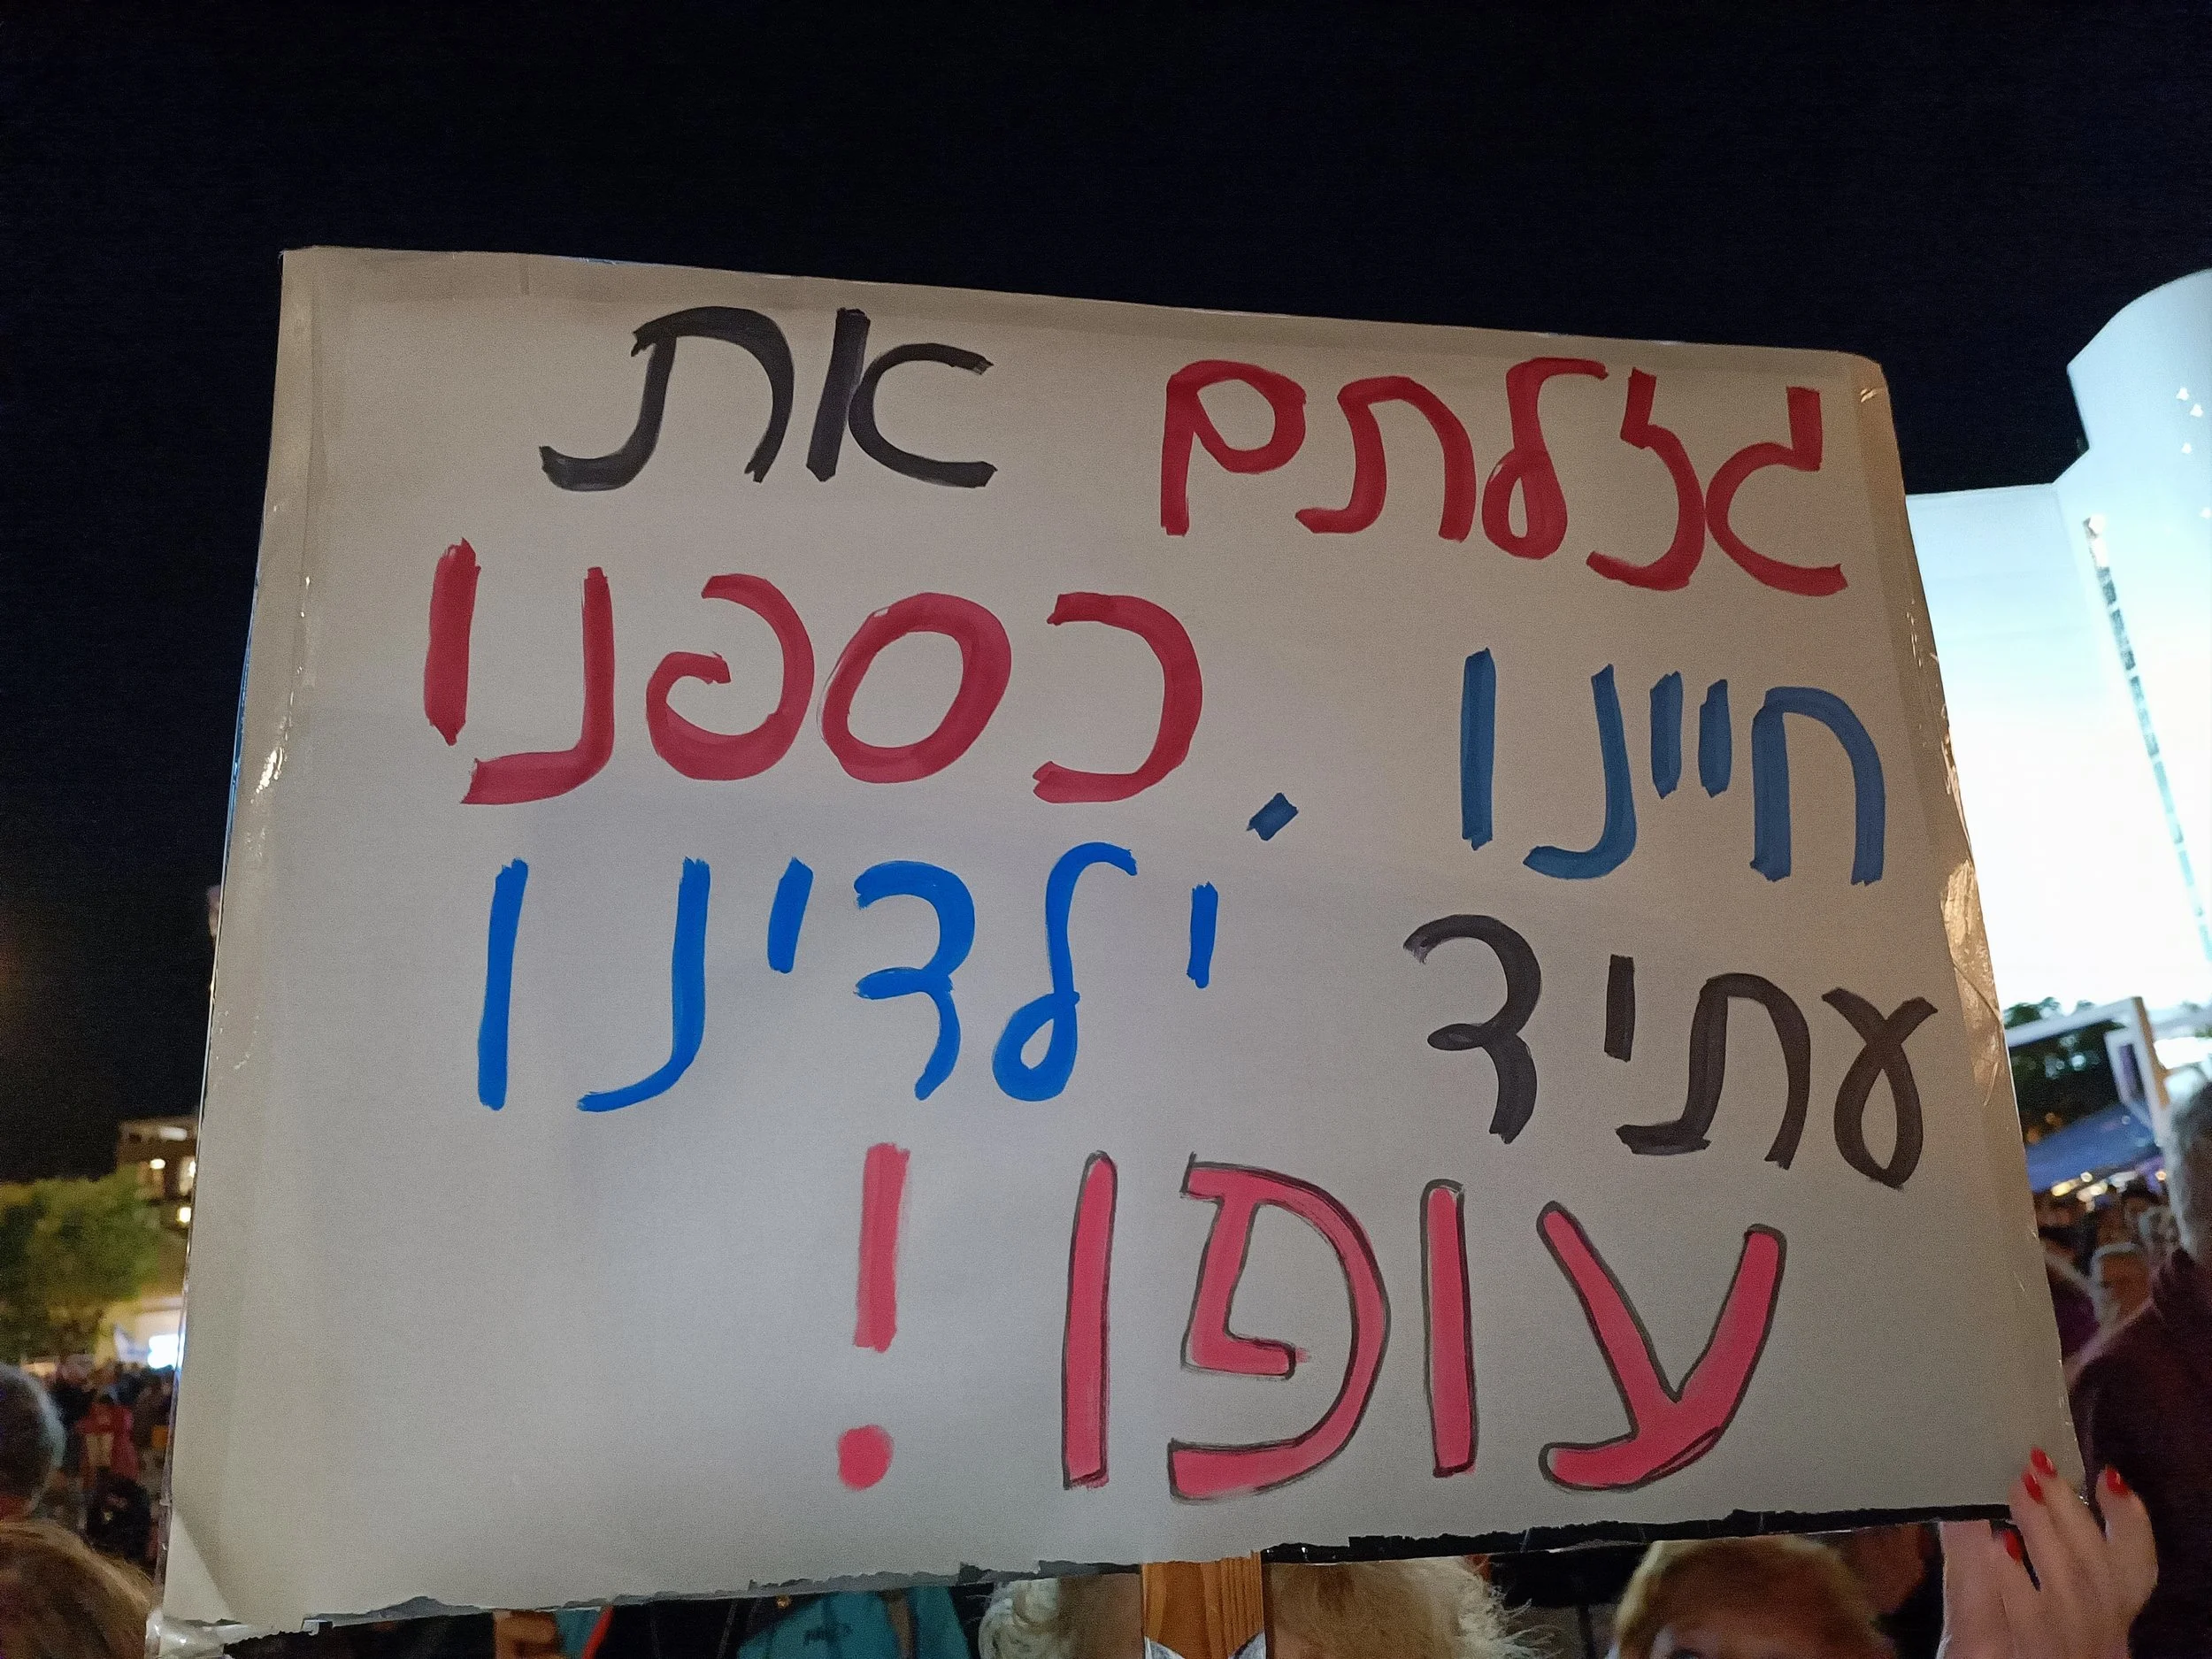 גזלתם את
חיינו, כספנו
עתיד ילדינו
עופו!